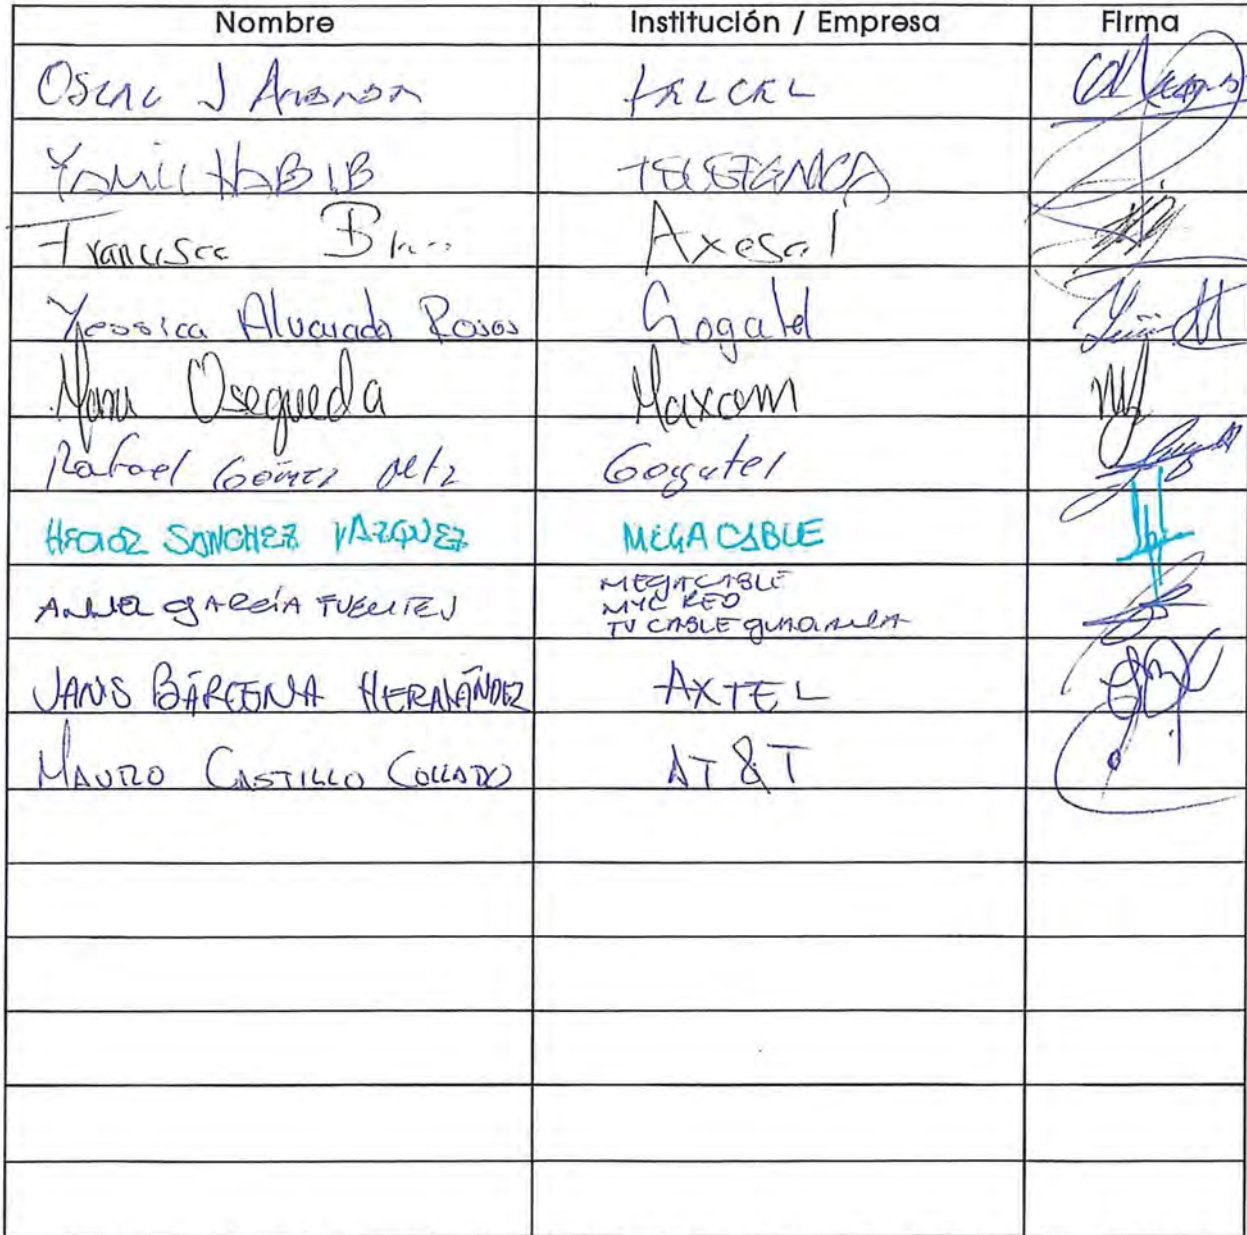 Nombre Institución / Empresa Firma
OSCAR J TELCEL
YAMIL HABIB TELEFONICA
Francisco Axesat
Yessica Alvarado Rosas Gogatel
Osegueda Maxcom
Rafael Gómez Mtz Gogatel
HECTOR SANCHEZ VAZQUEZ MEGA CABLE
GARCÍA FUENTES MEGACABLE
MYC RED
TV CABLE
JANIS BÁRCENA HERNÁNDEZ AXTEL
MAURO CASTILLO COLLADO AT&T